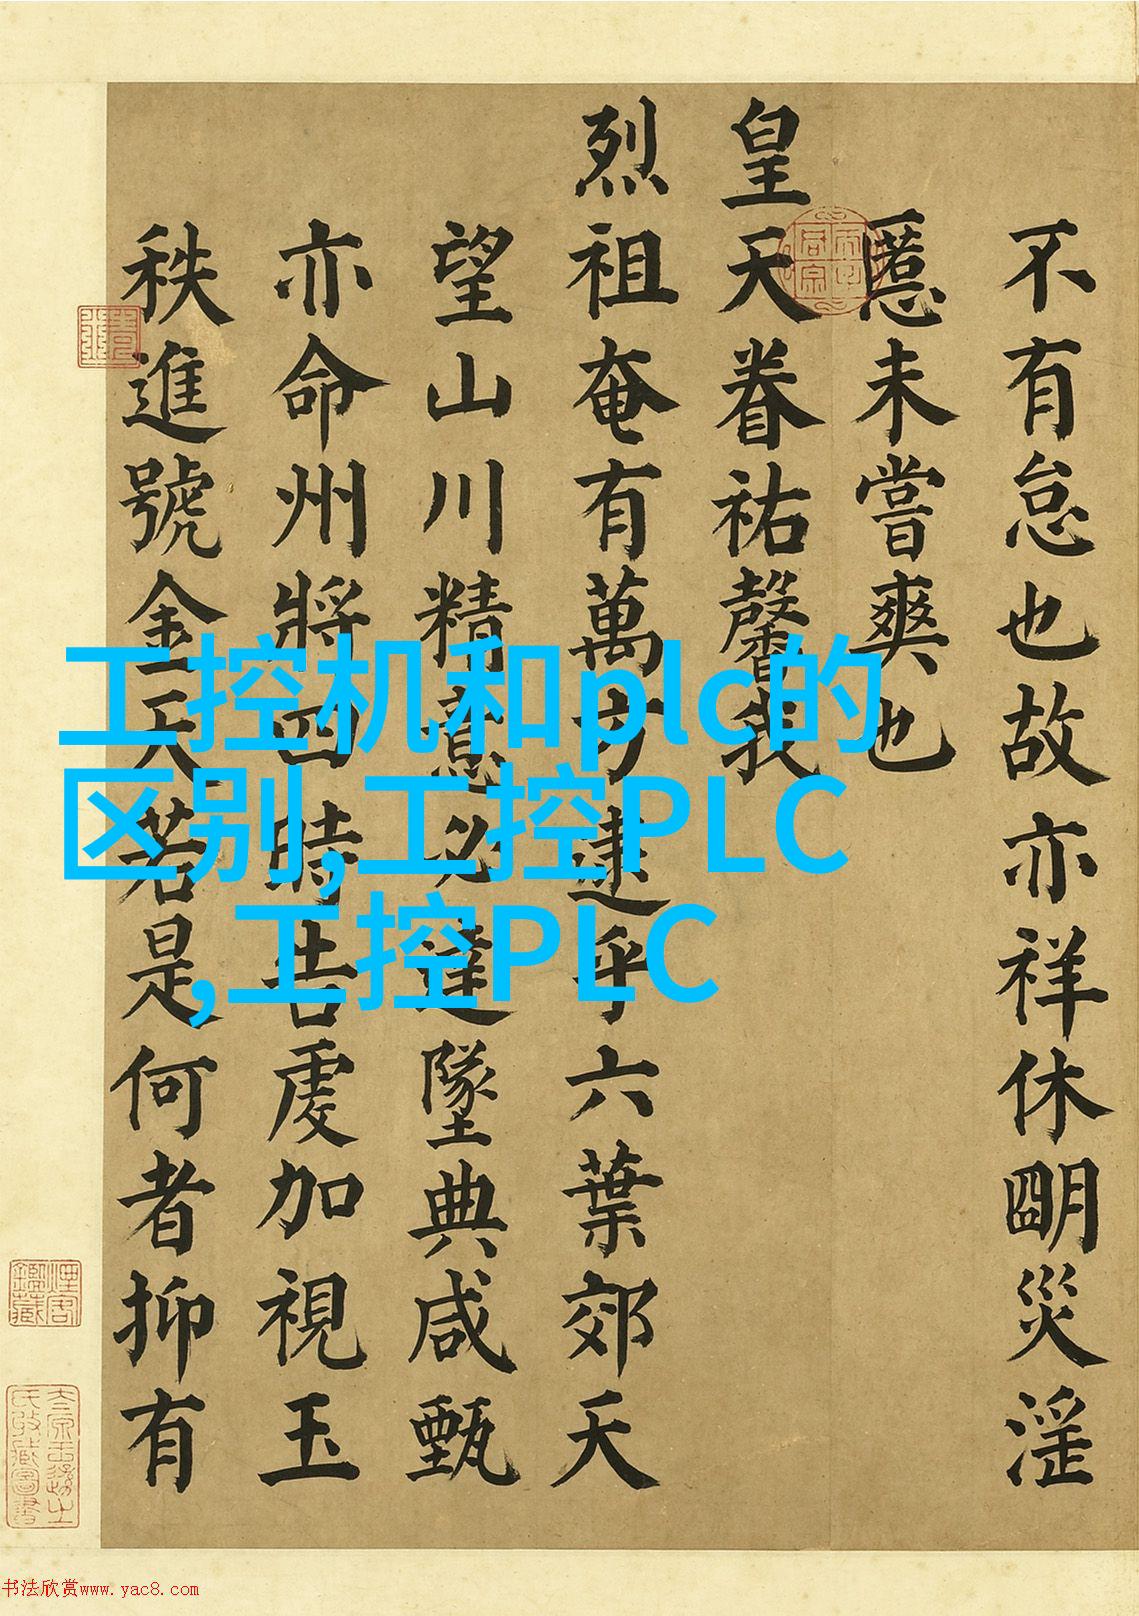 不有怠也故亦祥休朙災淫
慝未嘗爽也
皇天眷祐馨我
烈祖奄有萬方逮乎六葉郊天
望山川精意必達墜典咸甄
亦命州將四時告虔加視玉
秩進號金天若是何者抑有
工控机和plc的
区别,工控PLC
,工控PLC
书法欣赏www.yac8.com